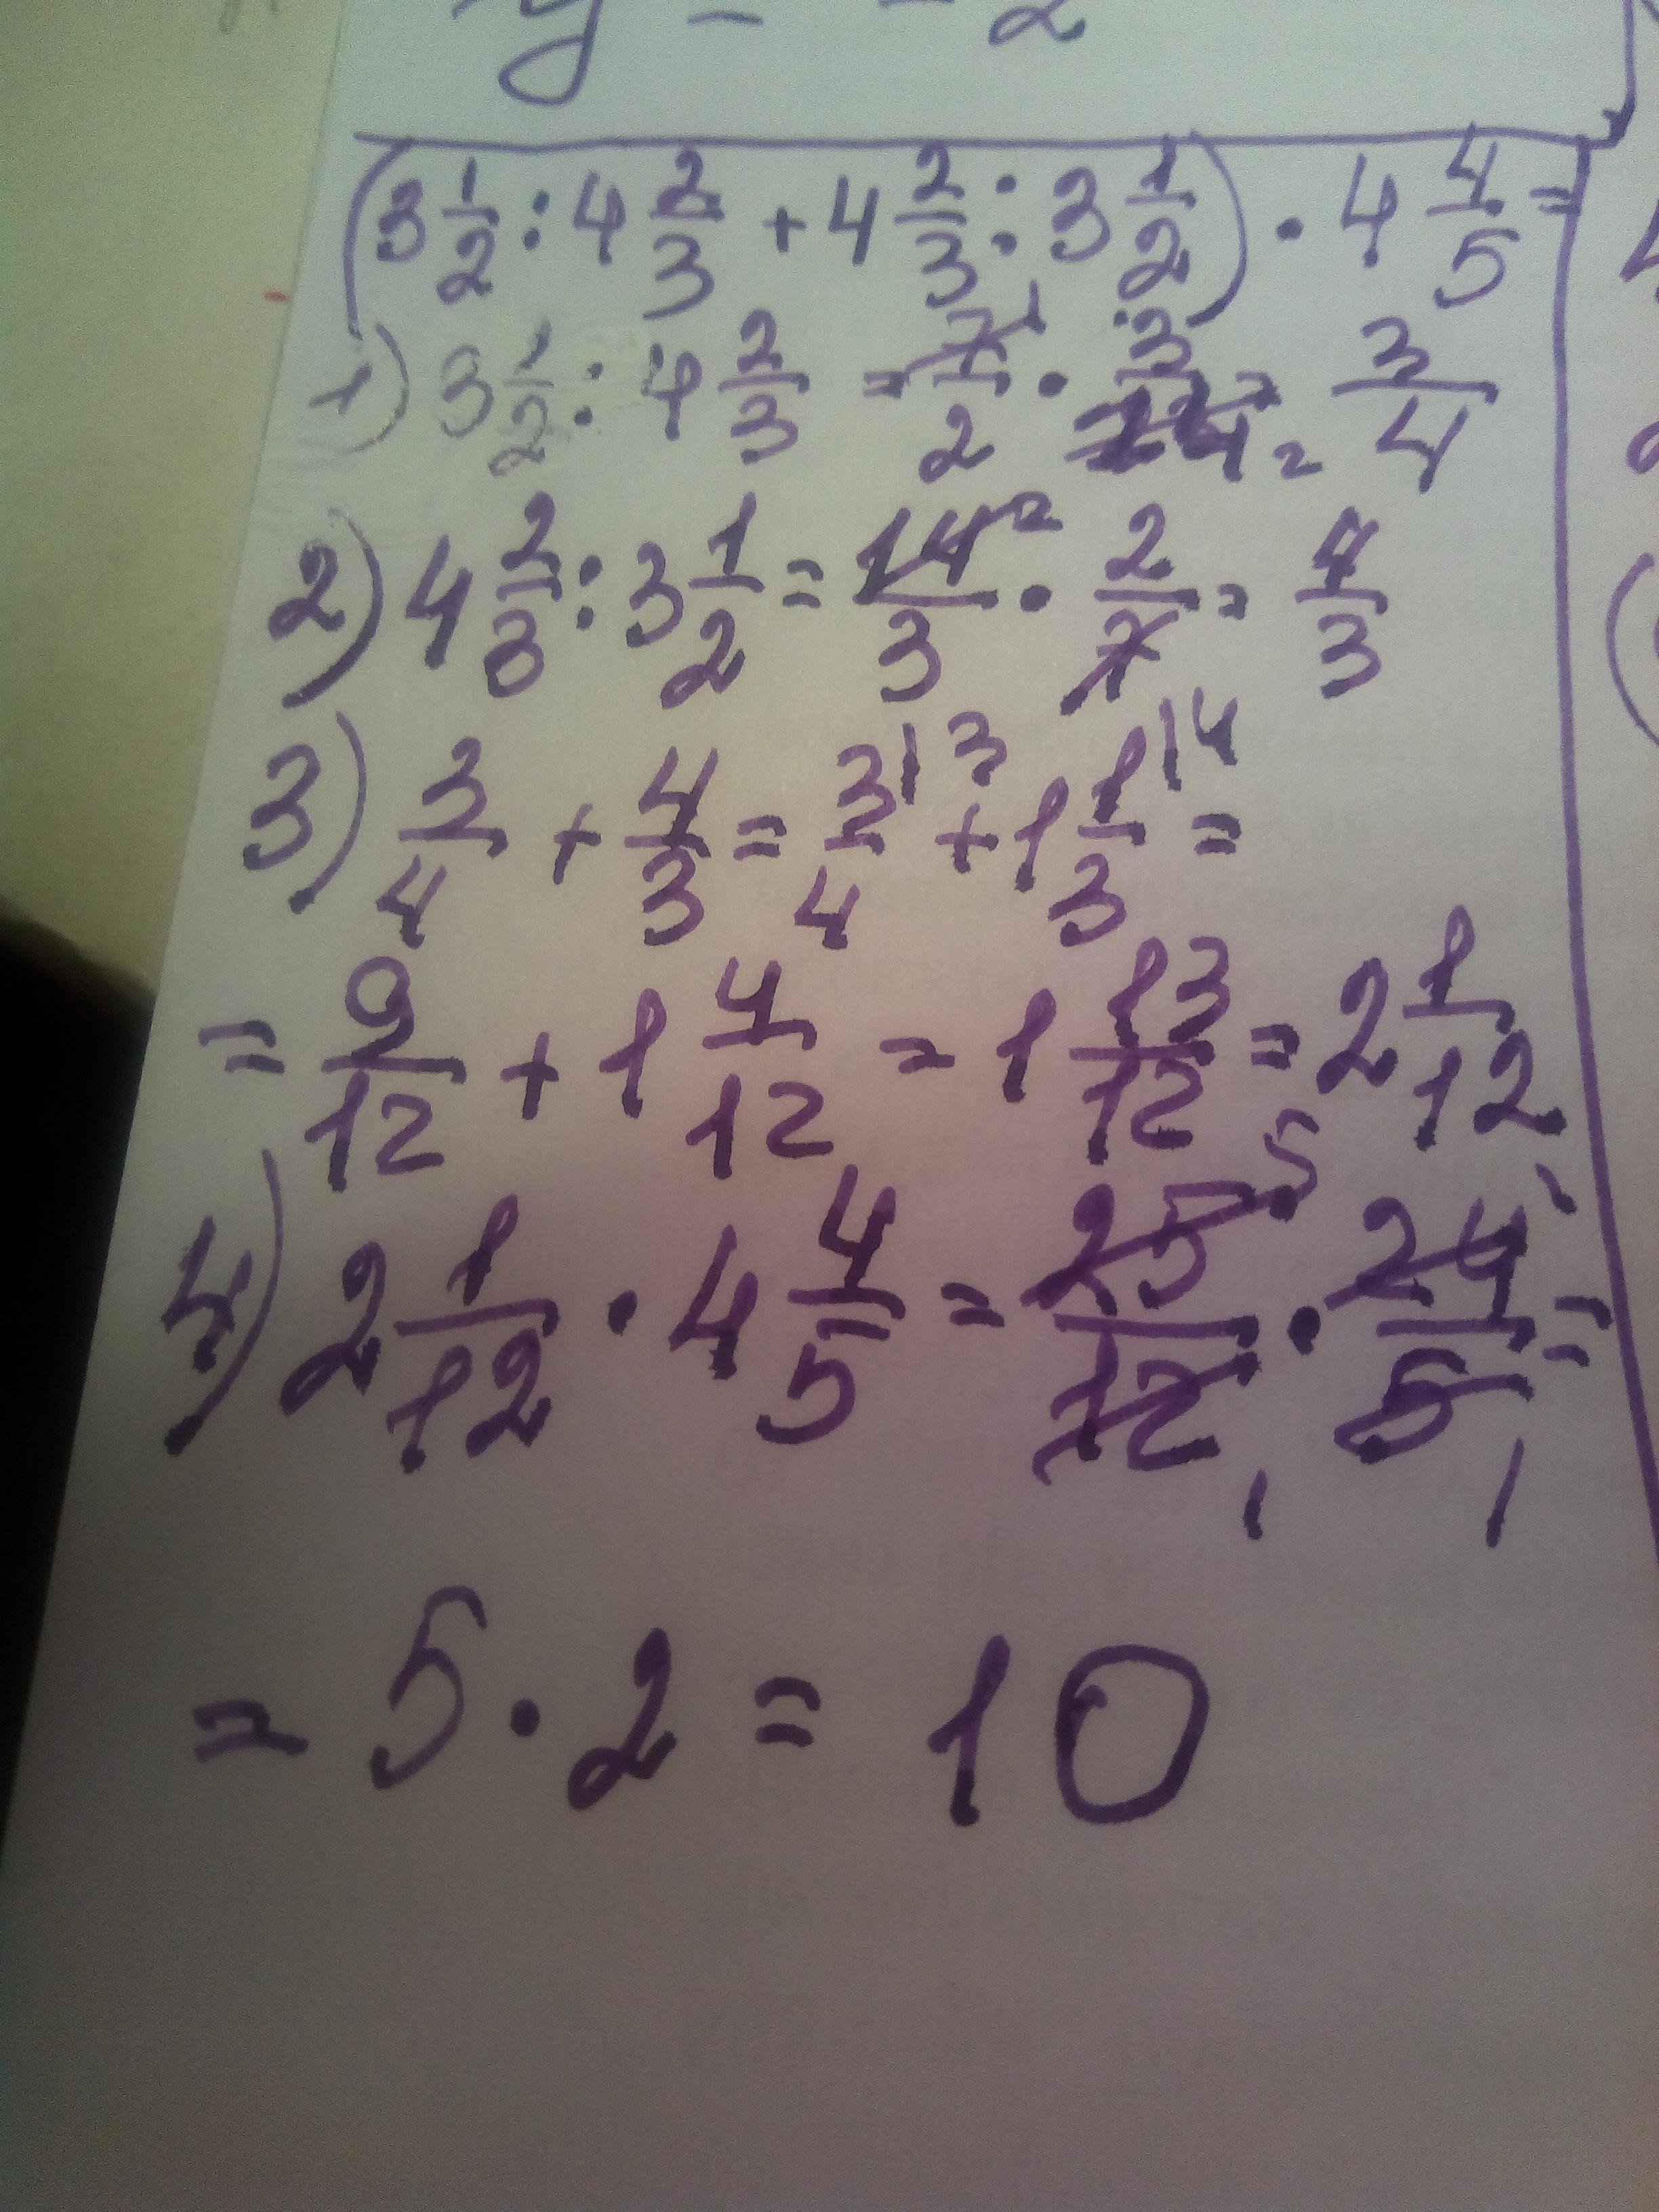 y = -2
(3 1/2 : 4 2/3 + 4 2/3 : 3 1/2) · 4 4/5 =
1) 3 1/2 : 4 2/3 = 7/2 · 3/14 = 3/4
2) 4 2/3 : 3 1/2 = 14/3 · 2/7 = 4/3
3) 3/4 + 4/3 = 3/4 + 1 1/3 =
= 9/12 + 1 4/12 = 1 13/12 = 2 1/12
4) 2 1/12 · 4 4/5 = 25/12 · 24/5 =
= 5 · 2 = 10